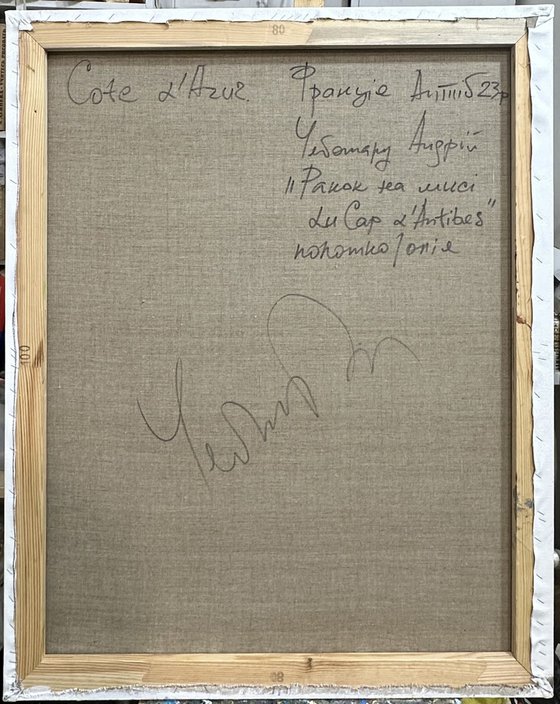 80
Cote d'Azur.
Франція Антіб 23р
Чеботару Андрій
"Ранок на мисі
du Cap d'Antibes"
полотно/олія
100
80